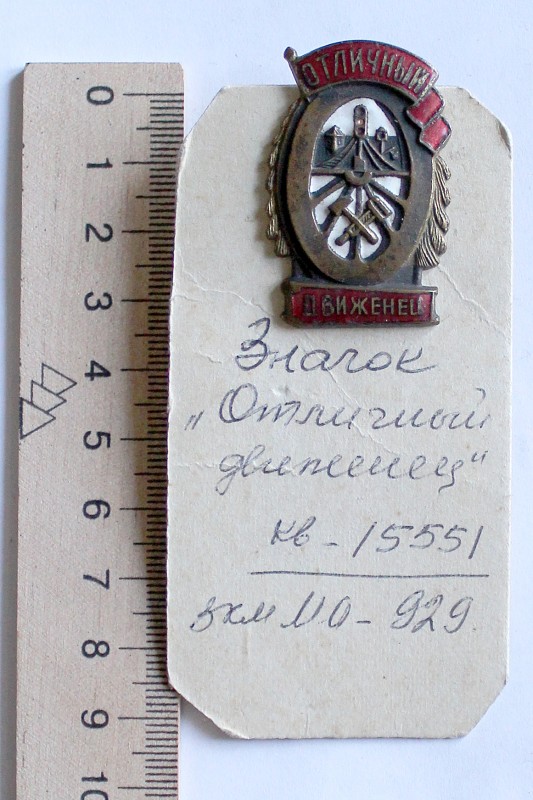 ОТЛИЧНЫЙ
ДВИЖЕНЕЦ
Значок
„Отличный
движенец"
кв - 15551
вкм МО - 929
0
1
2
3
4
5
6
7
8
9
10